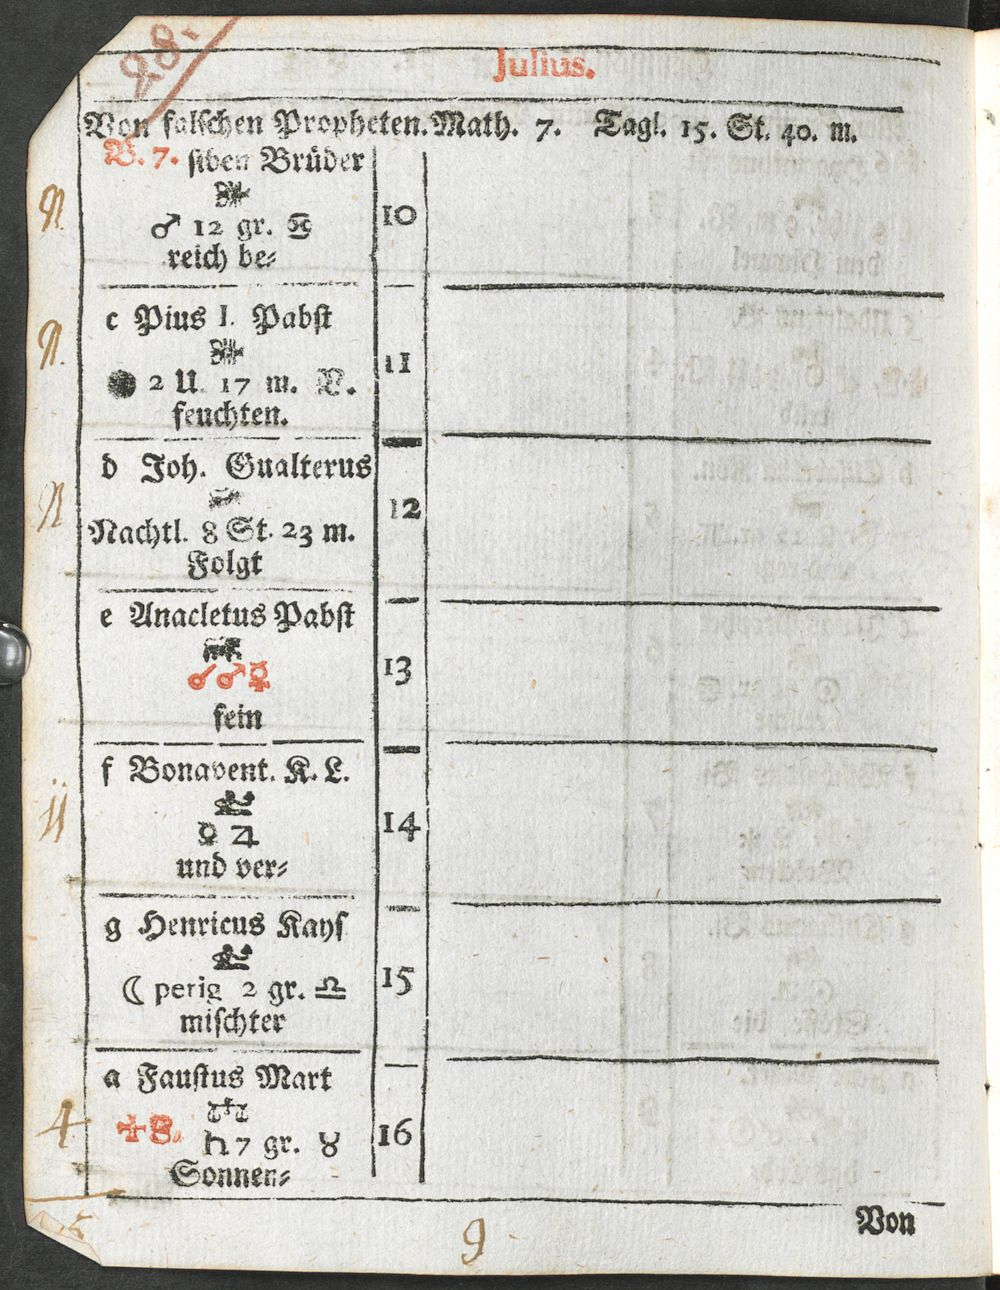 28.
Julius.
Von falschen Propheten. Math. 7. Tagl. 15. St. 40. m.
B. 7. siben Brüder
♂ 12 gr. ♋
10
reich be-
c Pius I. Pabst
11
2 U. 17 m. N.
feuchten.
d Joh. Gualterus
12
Nachtl. 8 St. 23 m.
Folgt
e Anacletus Pabst
13
☌ ♂ ☿
fein
f Bonavent. K. L.
14
☿ ♃
und ver-
g Henricus Kays
15
☾ perig 2 gr. ♎
mischter
a Faustus Mart
16
♄ 7 gr. ♉
4
Sonnen-
Von
9